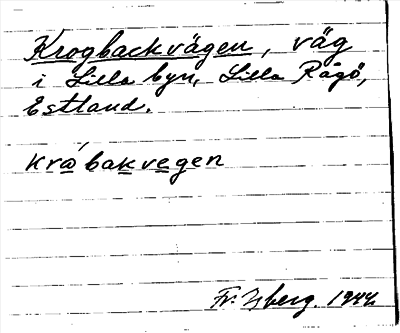 Krogbackvägen, väg
i Lilla byn, Lilla Rågö,
Estland.
krώbakvegen
Fr. Isberg. 1944